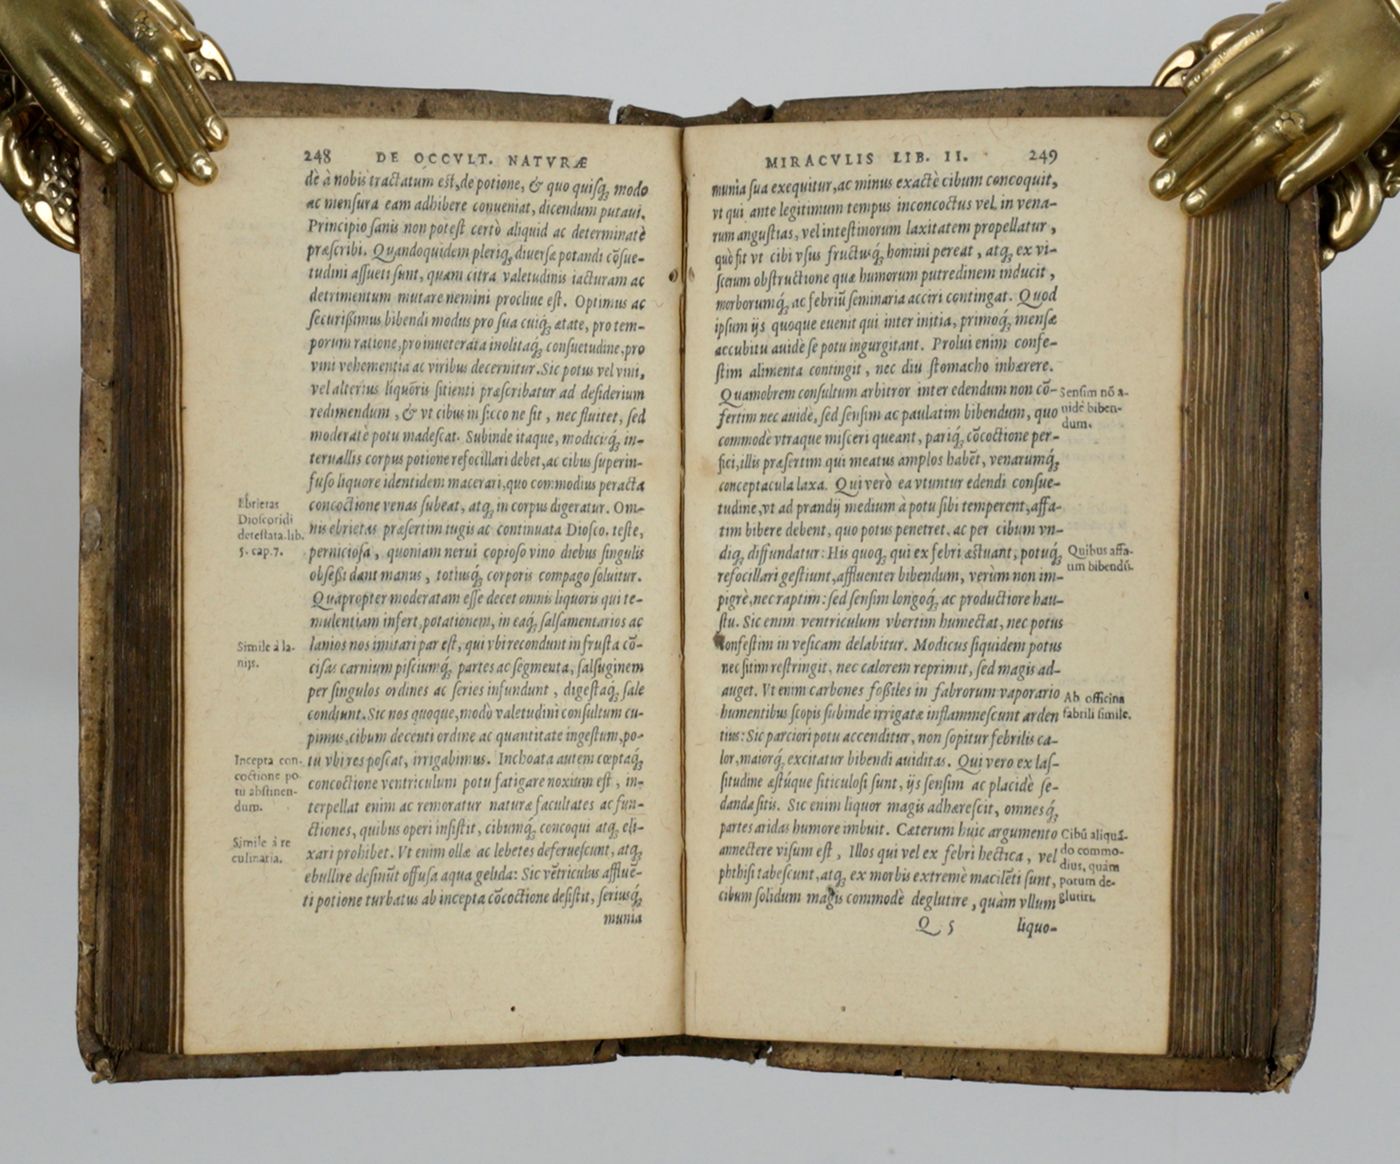 248 DE OCCVLT. NATVRÆ
dè à nobis tractatum est, de potione, & quo quisq; modo
ac mensura eam adhibere conueniat, dicendum putaui.
Principio sanis non potest certò aliquid ac determinatè
præscribi. Quandoquidem pleriq; diuersæ potandi cōsue-
tudini assueti sunt, quam citra valetudinis iacturam ac
detrimentum mutare nemini procliue est. Optimus ac
securißimus bibendi modus pro sua cuiq; ætate, pro tem-
porum ratione, pro inueterata inolitaq; consuetudine, pro
vini vehementia ac viribus decernitur. Sic potus vel vini,
vel alterius liquoris sitienti præscribatur ad desiderium
redimendum, & vt cibus in sicco ne sit, nec fluitet, sed
moderatè potu madescat. Subinde itaque, modicisq; in-
teruallis corpus potione refocillari debet, ac cibus superin-
fuso liquore identidem macerari, quo commodius peracta
concoctione venas subeat, atq; in corpus digeratur. Om-
nis ebrietas præsertim iugis ac continuata Diosco. teste,
perniciosa, quoniam nerui copioso vino diebus singulis
obseßi dant manus, totiusq; corporis compago soluitur.
Quapropter moderatam esse decet omnis liquoris qui te-
mulentiam infert, potationem, in eaq; salsamentarios ac
lanios nos imitari par est, qui vbi recondunt in frusta cō-
cisas carnium pisciumq; partes ac segmenta, salsuginem
per singulos ordines ac series infundunt, digestaq; sale
condiunt. Sic nos quoque, modò valetudini consultum cu-
pimus, cibum decenti ordine ac quantitate ingestum, po-
tu vbi res poscat, irrigabimus. Inchoata autem cœptaq;
concoctione ventriculum potu fatigare noxium est, in-
terpellat enim ac remoratur naturæ facultates ac fun-
ctiones, quibus operi insistit, cibumq; concoqui atq; eli-
xari prohibet. Vt enim ollæ ac lebetes deferuescunt, atq;
ebullire desinūt offusa aqua gelida: Sic vētriculus affluē-
ti potione turbatus ab incepta cōcoctione desistit, seriusq;
munia
Ebrietas
Dioscoridi
detestata. lib.
5. cap. 7.
Simile à la-
nijs.
Incepta con-
coctione po
tu abstinen-
dum.
Simile à re
culinaria.
MIRACVLIS LIB. II. 249
munia sua exequitur, ac minus exactè cibum concoquit,
vt qui ante legitimum tempus inconcoctus vel in vena-
rum angustias, vel intestinorum laxitatem propellatur,
quò fit vt cibi vsus fructusq; homini pereat, atq; ex vi-
scerum obstructione quæ humorum putredinem inducit,
morborumq; ac febriū seminaria acciri contingat. Quod
ipsum ijs quoque euenit qui inter initia, primoq; mensæ
accubitu auidè se potu ingurgitant. Prolui enim confe-
stim alimenta contingit, nec diu stomacho inhærere.
Quamobrem consultum arbitror inter edendum non cō-
fertim nec auidè, sed sensim ac paulatim bibendum, quo
commodè vtraque misceri queant, pariq; cōcoctione per-
fici, illis præsertim qui meatus amplos habēt, venarumq;
conceptacula laxa. Qui verò ea vtuntur edendi consue-
tudine, vt ad prandij medium à potu sibi temperent, affa-
tim bibere debent, quo potus penetret, ac per cibum vn-
diq; diffundatur: His quoq; qui ex febri æstuant, potuq;
refocillari gestiunt, affluenter bibendum, verùm non im-
pigrè, nec raptim: sed sensim longoq; ac productiore hau-
stu. Sic enim ventriculum vbertim humectat, nec potus
confestim in vesicam delabitur. Modicus siquidem potus
nec sitim restringit, nec calorem reprimit, sed magis ad-
auget. Vt enim carbones foßiles in fabrorum vaporario
humentibus scopis subinde irrigatæ inflammescunt arden
tius: Sic parciori potu accenditur, non sopitur febrilis ca-
lor, maiorq; excitatur bibendi auiditas. Qui vero ex las-
situdine æstúque siticulosi sunt, ijs sensim ac placidè se-
danda sitis. Sic enim liquor magis adhærescit, omnesq;
partes aridas humore imbuit. Cæterum huic argumento
annectere visum est, Illos qui vel ex febri hectica, vel
phthisi tabescunt, atq; ex morbis extremè macilēti sunt,
cibum solidum magis commodè deglutire, quàm vllum
Q 5 liquo-
Sensim nō a-
uidè biben-
dum.
Quibus affa-
tim bibendū.
Ab officina
fabrili simile.
Cibū aliquā-
do commo-
dius, quàm
potum de-
glutiri.